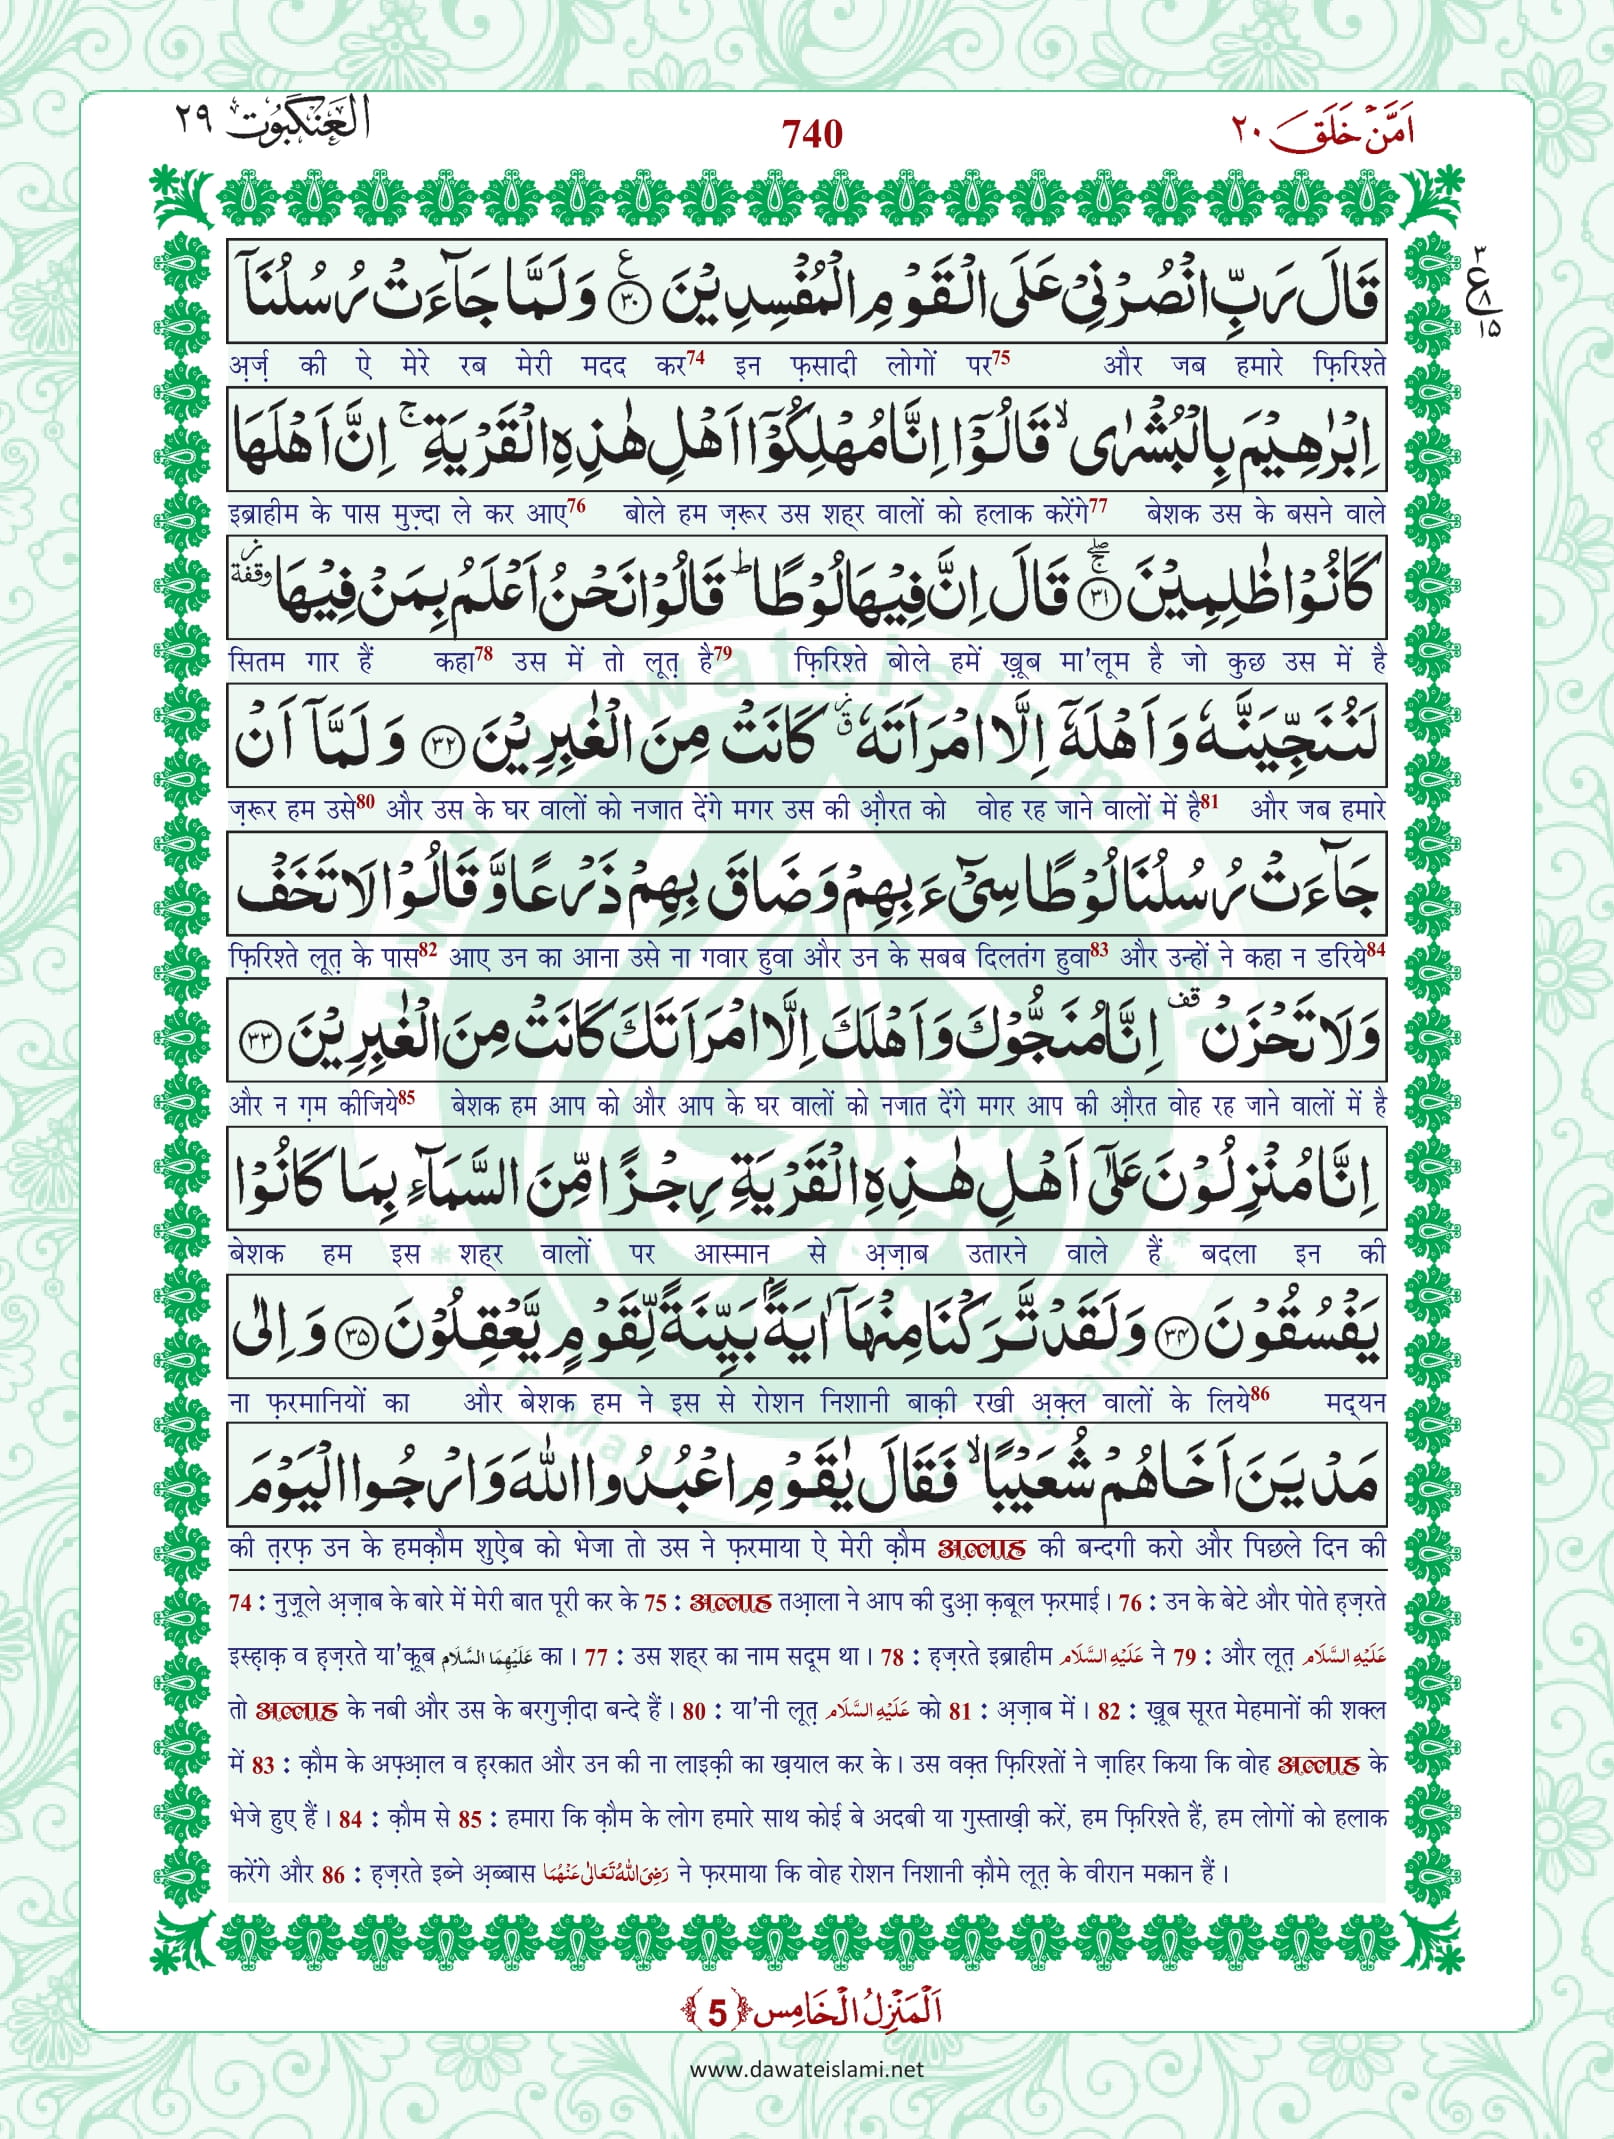 اَمَّنْ خَلَقَ ٢٠
740
الْعَنْكَبُوْت ٢٩
قَالَ رَبِّ انْصُرْنِیْ عَلَی الْقَوْمِ الْمُفْسِدِیْنَ ﴿٣٠﴾ وَ لَمَّا جَآءَتْ رُسُلُنَاۤ
٣ ع ٨ ١٥
अ़र्ज़ की ऐ मेरे रब मेरी मदद कर74 इन फ़सादी लोगों पर75 और जब हमारे फ़िरिश्ते
اِبْرٰهِیْمَ بِالْبُشْرٰی ۙ قَالُوْۤا اِنَّا مُهْلِكُوْۤا اَهْلِ هٰذِهِ الْقَرْیَةِ ۚ اِنَّ اَهْلَهَا
इब्राहीम के पास मुज़्दा ले कर आए76 बोले हम ज़रूर उस शहर वालों को हलाक करेंगे77 बेशक उस के बसने वाले
كَانُوْا ظٰلِمِیْنَ ﴿٣١﴾ قَالَ اِنَّ فِیْهَا لُوْطًا ؕ قَالُوْا نَحْنُ اَعْلَمُ بِمَنْ فِیْهَا وقفة
सितम गार हैं कहा78 उस में तो लूत़ है79 फ़िरिश्ते बोले हमें ख़ूब मा'लूम है जो कुछ उस में है
لَنُنَجِّیَنَّهٗ وَ اَهْلَهٗۤ اِلَّا امْرَاَتَهٗ كَانَتْ مِنَ الْغٰبِرِیْنَ ﴿٣٢﴾ وَ لَمَّاۤ اَنْ
ज़रूर हम उसे80 और उस के घर वालों को नजात देंगे मगर उस की औ़रत को वोह रह जाने वालों में है81 और जब हमारे
جَآءَتْ رُسُلُنَا لُوْطًا سِیْٓءَ بِهِمْ وَ ضَاقَ بِهِمْ ذَرْعًا وَّ قَالُوْا لَا تَخَفْ
फ़िरिश्ते लूत़ के पास82 आए उन का आना उसे ना गवार हुवा और उन के सबब दिलतंग हुवा83 और उन्हों ने कहा न डरिये84
وَ لَا تَحْزَنْ قف اِنَّا مُنَجُّوْكَ وَ اَهْلَكَ اِلَّا امْرَاَتَكَ كَانَتْ مِنَ الْغٰبِرِیْنَ ﴿٣٣﴾
और न ग़म कीजिये85 बेशक हम आप को और आप के घर वालों को नजात देंगे मगर आप की औ़रत वोह रह जाने वालों में है
اِنَّا مُنْزِلُوْنَ عَلٰۤی اَهْلِ هٰذِهِ الْقَرْیَةِ رِجْزًا مِّنَ السَّمَآءِ بِمَا كَانُوْا
बेशक हम इस शहर वालों पर आस्मान से अ़ज़ाब उतारने वाले हैं बदला इन की
یَفْسُقُوْنَ ﴿٣٤﴾ وَ لَقَدْ تَّرَكْنَا مِنْهَاۤ اٰیَةًۢ بَیِّنَةً لِّقَوْمٍ یَّعْقِلُوْنَ ﴿٣٥﴾ وَ اِلٰی
ना फ़रमानियों का और बेशक हम ने इस से रोशन निशानी बाक़ी रखी अ़क़्ल वालों के लिये86 मद्यन
مَدْیَنَ اَخَاهُمْ شُعَیْبًا ۙ فَقَالَ یٰقَوْمِ اعْبُدُوا اللّٰهَ وَ ارْجُوا الْیَوْمَ
की त़रफ़ उन के हमक़ौम शुऐ़ब को भेजा तो उस ने फ़रमाया ऐ मेरी क़ौम अल्लाह की बन्दगी करो और पिछले दिन की
74 : नुज़ूले अ़ज़ाब के बारे में मेरी बात पूरी कर के 75 : अल्लाह तआ़ला ने आप की दुआ़ क़बूल फ़रमाई । 76 : उन के बेटे और पोते ह़ज़रते
इस्ह़ाक़ व ह़ज़रते या'क़ूब عَلَيْهِمَا السَّلَام का । 77 : उस शहर का नाम सदूम था । 78 : ह़ज़रते इब्राहीम عَلَيْهِ السَّلَام ने 79 : और लूत़ عَلَيْهِ السَّلَام
तो अल्लाह के नबी और उस के बरगुज़ीदा बन्दे हैं । 80 : या'नी लूत़ عَلَيْهِ السَّلَام को 81 : अ़ज़ाब में । 82 : ख़ूब सूरत मेहमानों की शक्ल
में 83 : क़ौम के अफ़्आ़ल व ह़रकात और उन की ना लाइक़ी का ख़याल कर के । उस वक़्त फ़िरिश्तों ने ज़ाहिर किया कि वोह अल्लाह के
भेजे हुए हैं । 84 : क़ौम से 85 : हमारा कि क़ौम के लोग हमारे साथ कोई बे अदबी या गुस्ताख़ी करें, हम फ़िरिश्ते हैं, हम लोगों को हलाक
करेंगे और 86 : ह़ज़रते इब्ने अ़ब्बास رَضِيَ اللهُ تَعَالٰى عَنْهُمَا ने फ़रमाया कि वोह रोशन निशानी क़ौमे लूत़ के वीरान मकान हैं ।
اَلْمَنْزِلُ الْخَامِس ﴿5﴾
www.dawateislami.net